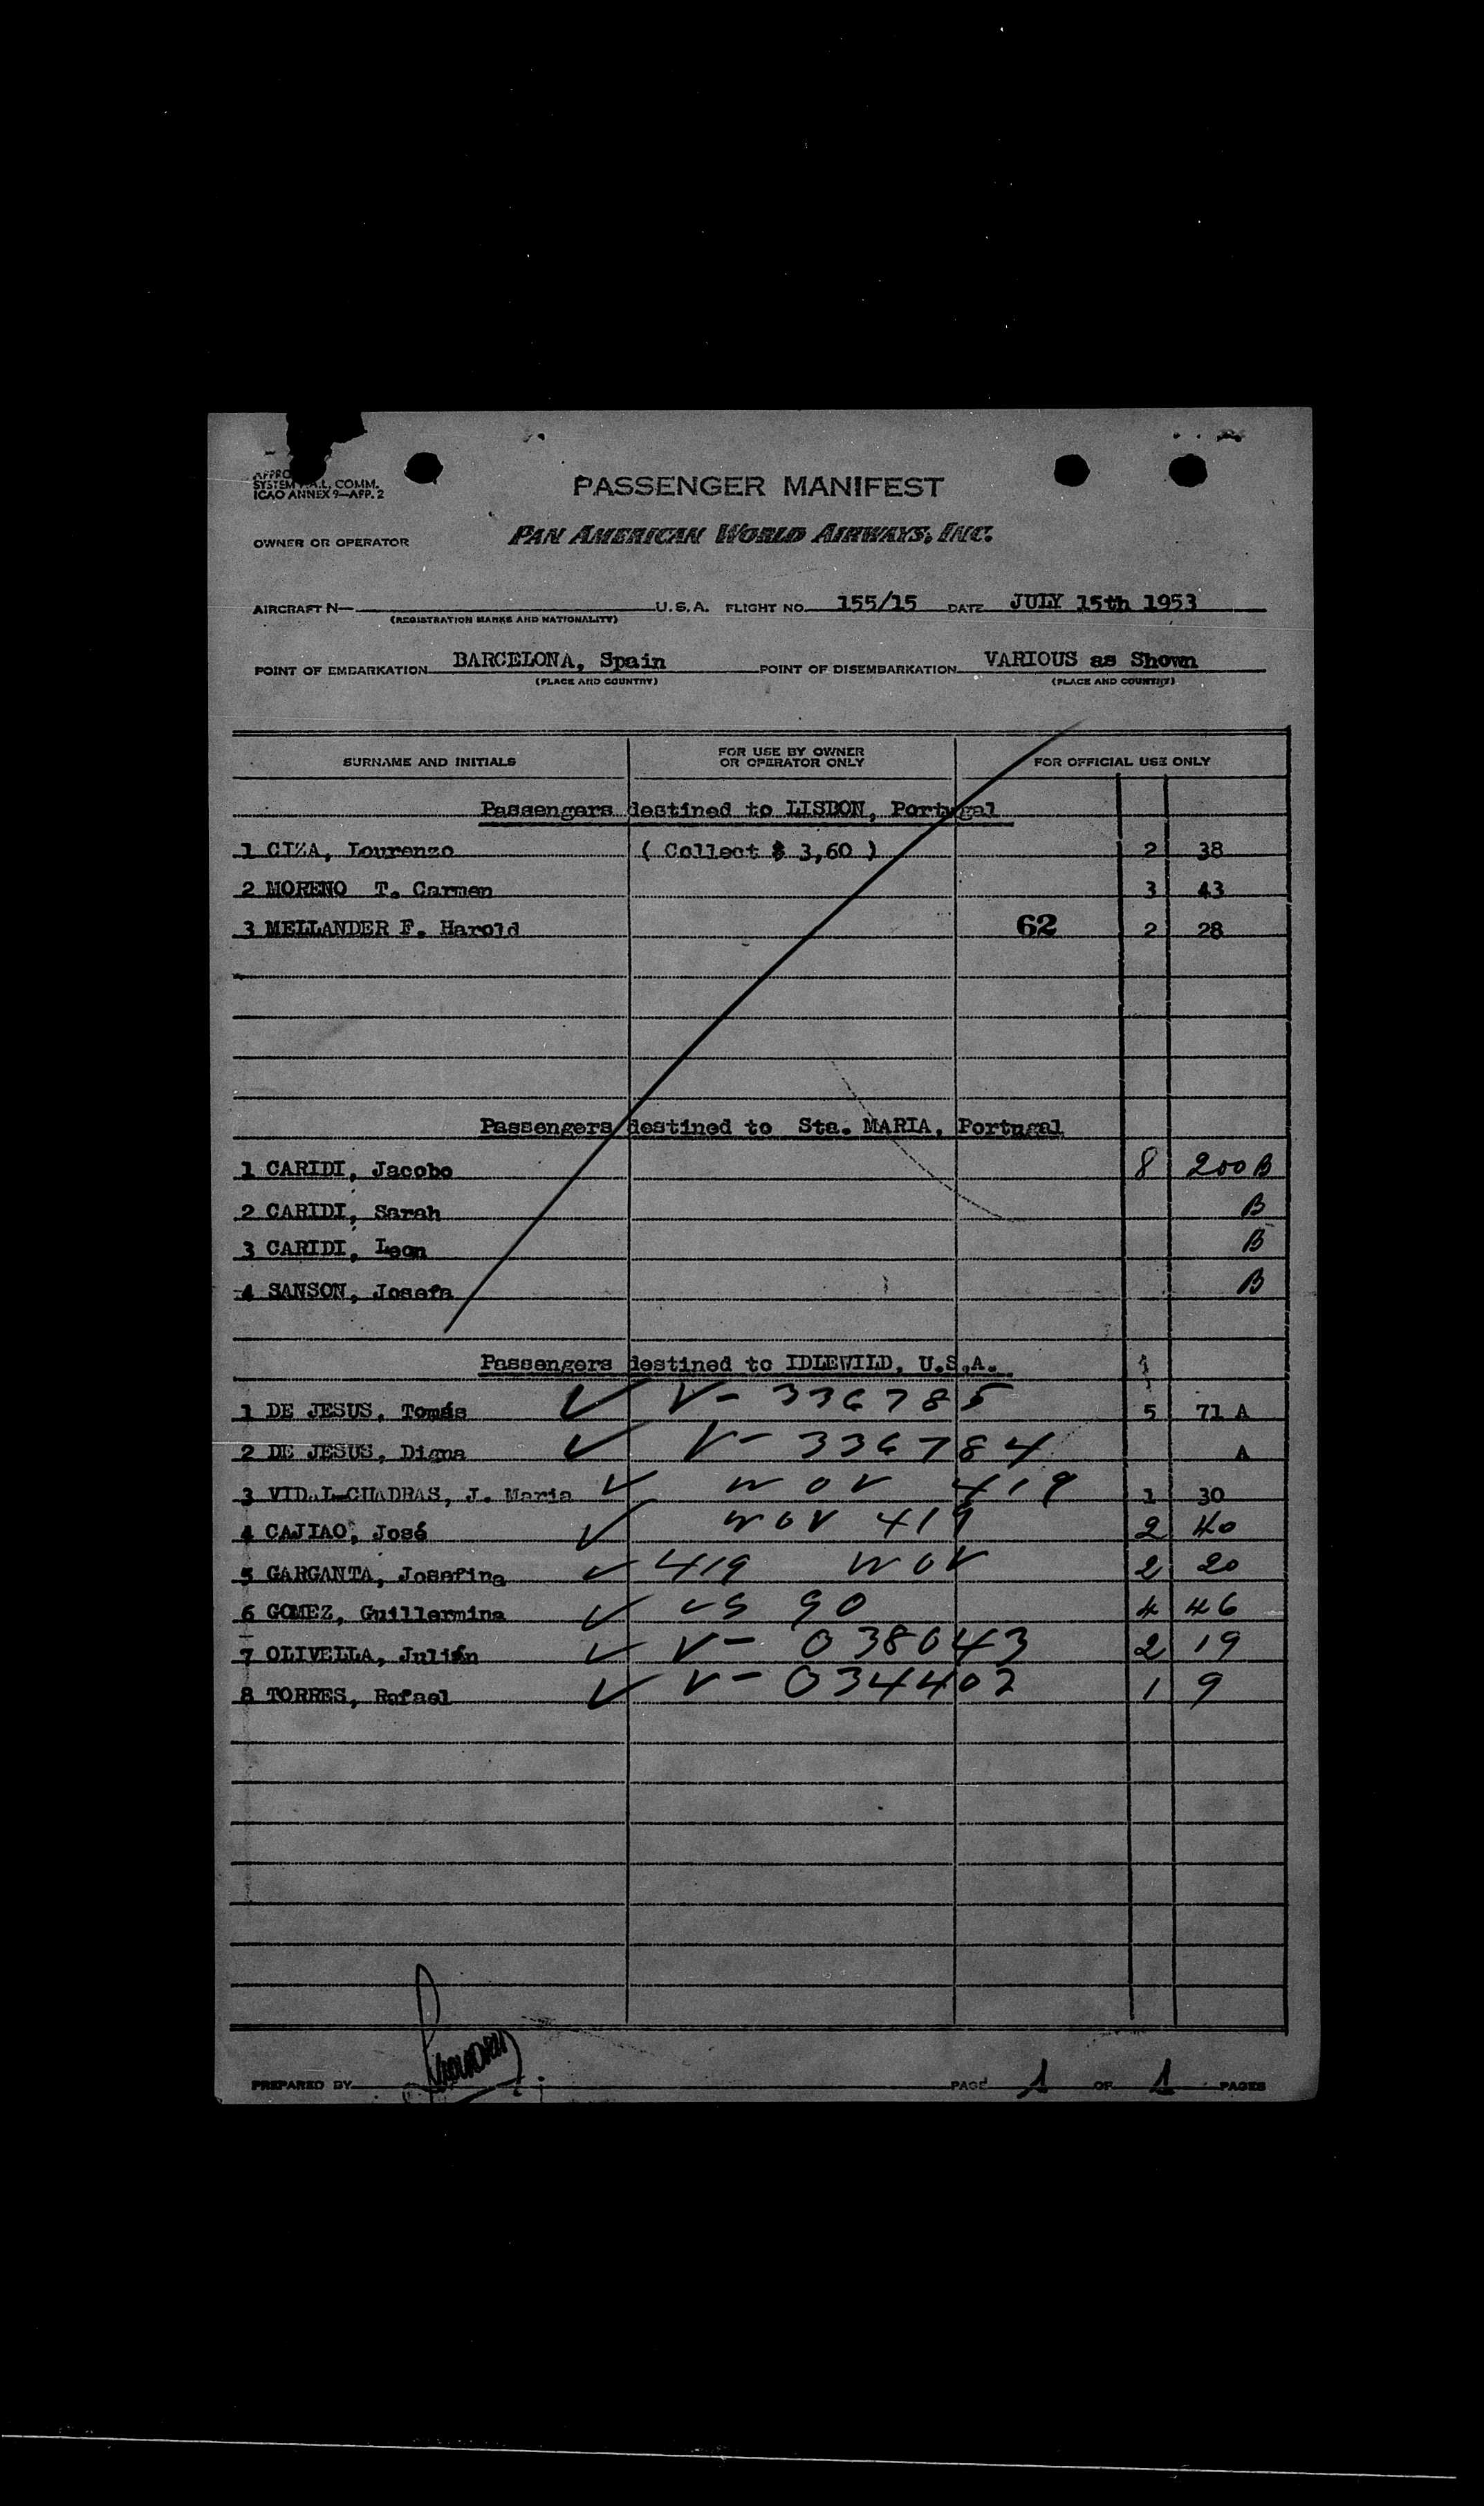 APPRO
SYSTEM F.A.L. COMM.
ICAO ANNEX 9—APP. 2
PASSENGER MANIFEST
OWNER OR OPERATOR PAN AMERICAN WORLD AIRWAYS, INC.
AIRCRAFT N— U.S.A. FLIGHT NO. 155/15 DATE JULY 15th 1953
(REGISTRATION MARKS AND NATIONALITY)
POINT OF EMBARKATION BARCELONA, Spain POINT OF DISEMBARKATION VARIOUS as Shown
(PLACE AND COUNTRY) (PLACE AND COUNTRY)
SURNAME AND INITIALS FOR USE BY OWNER OR OPERATOR ONLY FOR OFFICIAL USE ONLY
Passengers destined to LISBON, Portugal
1 CIZA, Lourenzo ( Collect $ 3,60 ) 2 38
2 MORENO T. Carmen 3 43
3 MELLANDER F. Harold 62 2 28
Passengers destined to Sta. MARIA, Portugal
1 CARIDI, Jacobo 8 200 B
2 CARIDI, Sarah B
3 CARIDI, Leon B
4 SANSON, Josefa B
Passengers destined to IDLEWILD, U.S.A.
1 DE JESUS, Tomás ✓ V- 336785 5 71 A
2 DE JESUS, Digna ✓ V- 336784 A
3 VIDAL-CUADRAS, J. Maria ✓ NOV 419 1 30
4 CAJIAO, José ✓ NOV 419 2 40
5 GARGANTA, Josefina ✓ 419 NOV 2 20
6 GOMEZ, Guillermina ✓ US 90 4 46
7 OLIVELLA, Julián ✓ V- 038043 2 19
8 TORRES, Rafael ✓ V- 034402 1 9
PREPARED BY PAGE 1 OF 1 PAGES